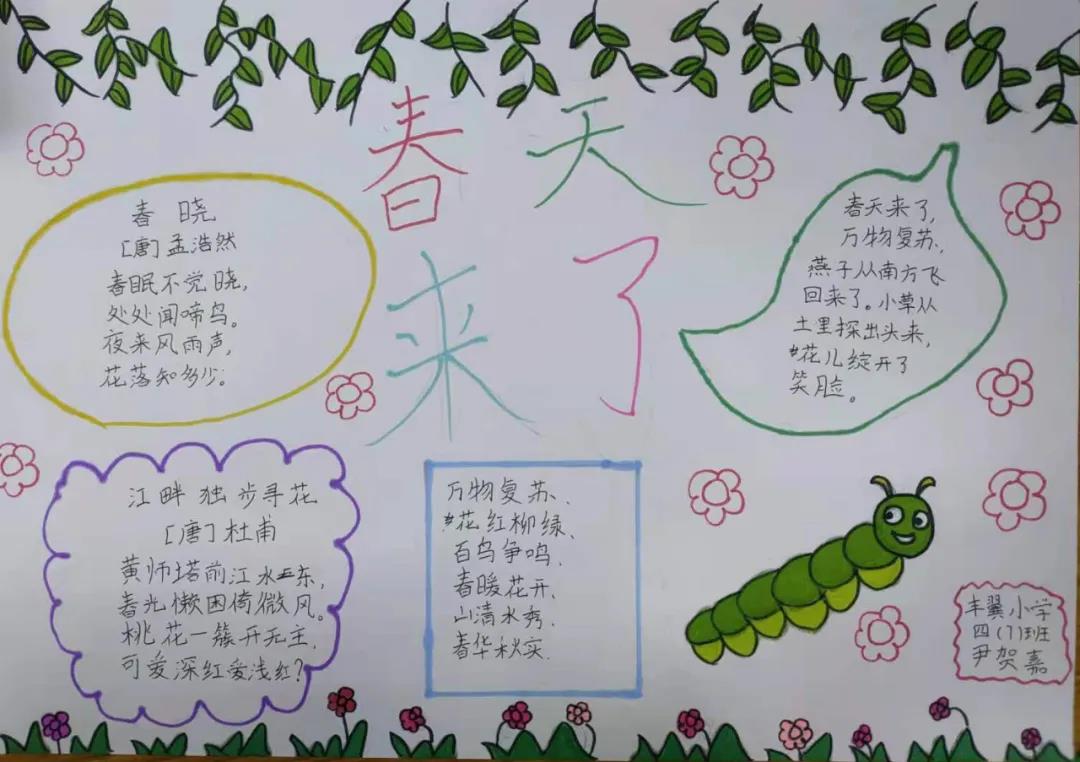 春天
来了
春 晓
[唐]孟浩然
春眠不觉晓,
处处闻啼鸟。
夜来风雨声,
花落知多少。
春天来了,
万物复苏、
燕子从南方飞
回来了。小草从
土里探出头来,
花儿绽开了
笑脸。
江畔独步寻花
[唐]杜甫
黄师塔前江水东,
春光懒困倚微风。
桃花一簇开无主,
可爱深红爱浅红?
万物复苏、
花红柳绿、
百鸟争鸣、
春暖花开、
山清水秀、
春华秋实.
丰翼小学
四(7)班
尹贺嘉